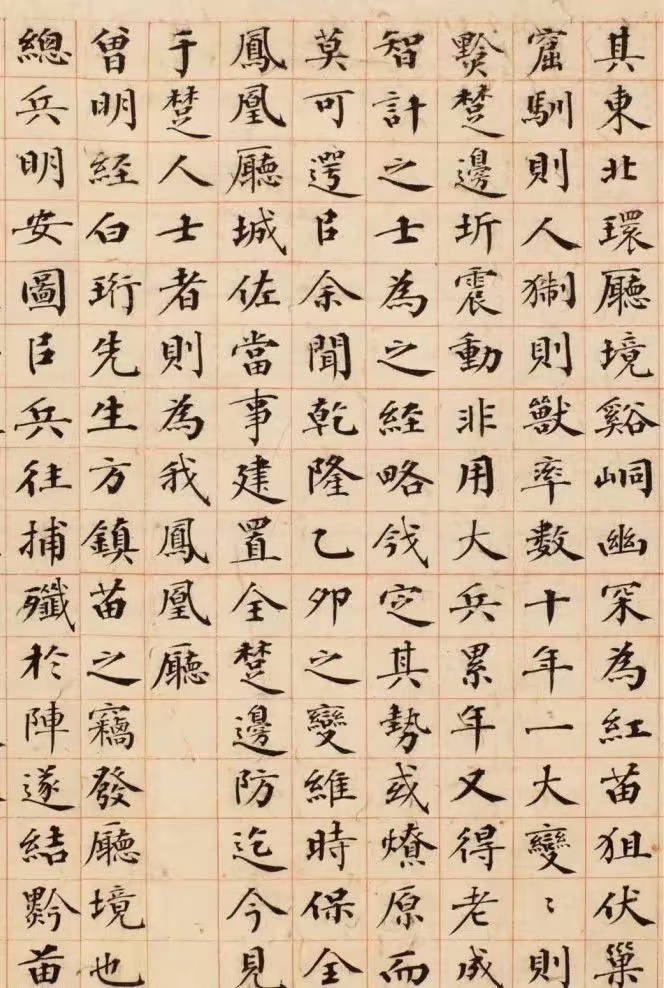 其東北環廳境谿峒幽罙為紅苗狙伏巢
窟馴則人猘則獸率數十年一大變〻則
黔楚邊圻震動非用大兵累年又得老成
智計之士為之経略戡定其勢或燎原而
莫可遏臣余聞乾隆乙卯之變維時保全
鳳凰廳城佐當事建置全楚邊防迄今見
于楚人士者則為我鳳凰廳
曾明経白珩先生方鎮苗之竊發廳境也
總兵明安圖臣兵往捕殲於陣遂結黔苗